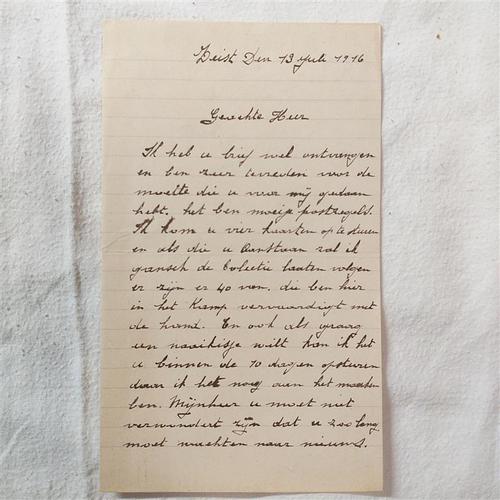 Zeist Den 13 Juli 1916
Geachte Heer
Ik heb u brief wel ontvrengen
en ben zeer tevreden voor de
moeite die u voor mij gedaan
hebt. het ben mooije postzegels.
Ik kom u vier kaarten op te stuuren
en als die u Aanstaan zal ik
gansch de Colectie laaten volgen
er zijn er 40 van. die ben hier
in het Kamp vervaardigt met
de hand. En ook als graag
een naaikisje wilt kan ik het
u binnen de 10 dagen opsturen
daar ik het nog aan het maaken
ben. Mijnheer u moet niet
verwondert zijn dat u zoo lang
moet wachten naar nieuws.